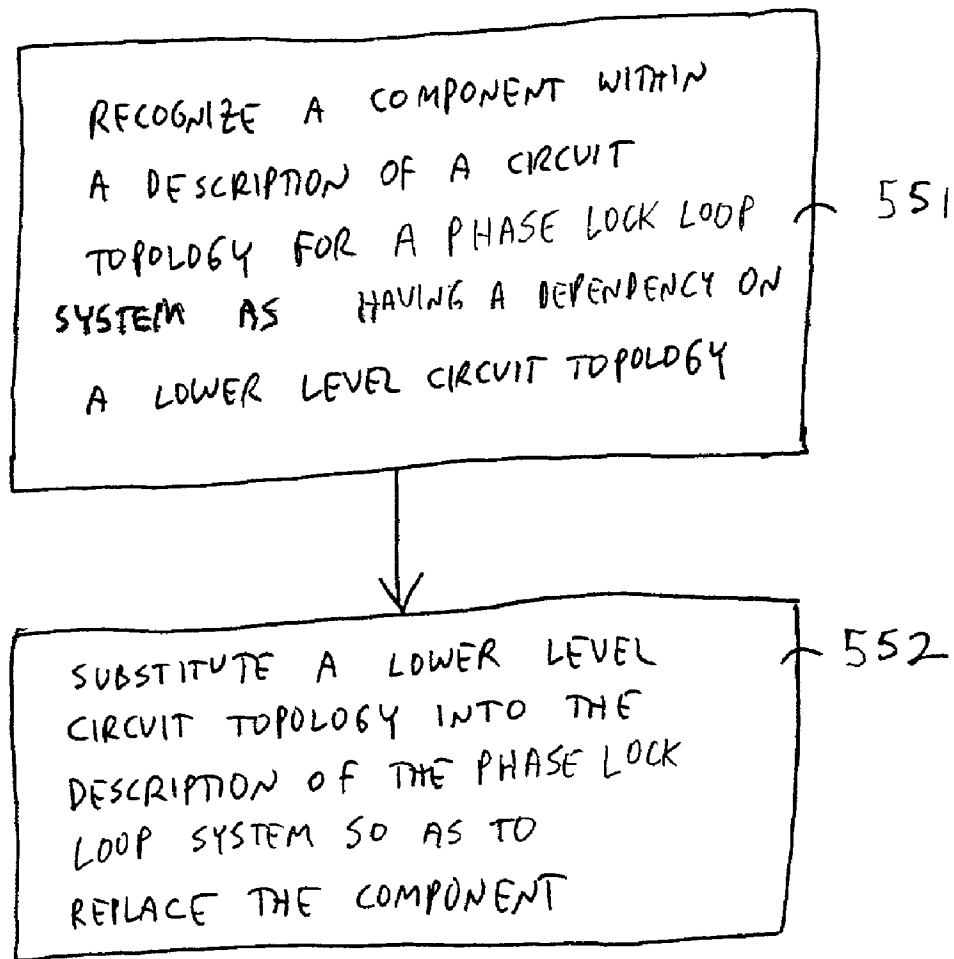 RECOGNIZE A COMPONENT WITHIN
A DESCRIPTION OF A CIRCUIT
TOPOLOGY FOR A PHASE LOCK LOOP
SYSTEM AS HAVING A DEPENDENCY ON
A LOWER LEVEL CIRCUIT TOPOLOGY
551
SUBSTITUTE A LOWER LEVEL
CIRCUIT TOPOLOGY INTO THE
DESCRIPTION OF THE PHASE LOCK
LOOP SYSTEM SO AS TO
REPLACE THE COMPONENT
552